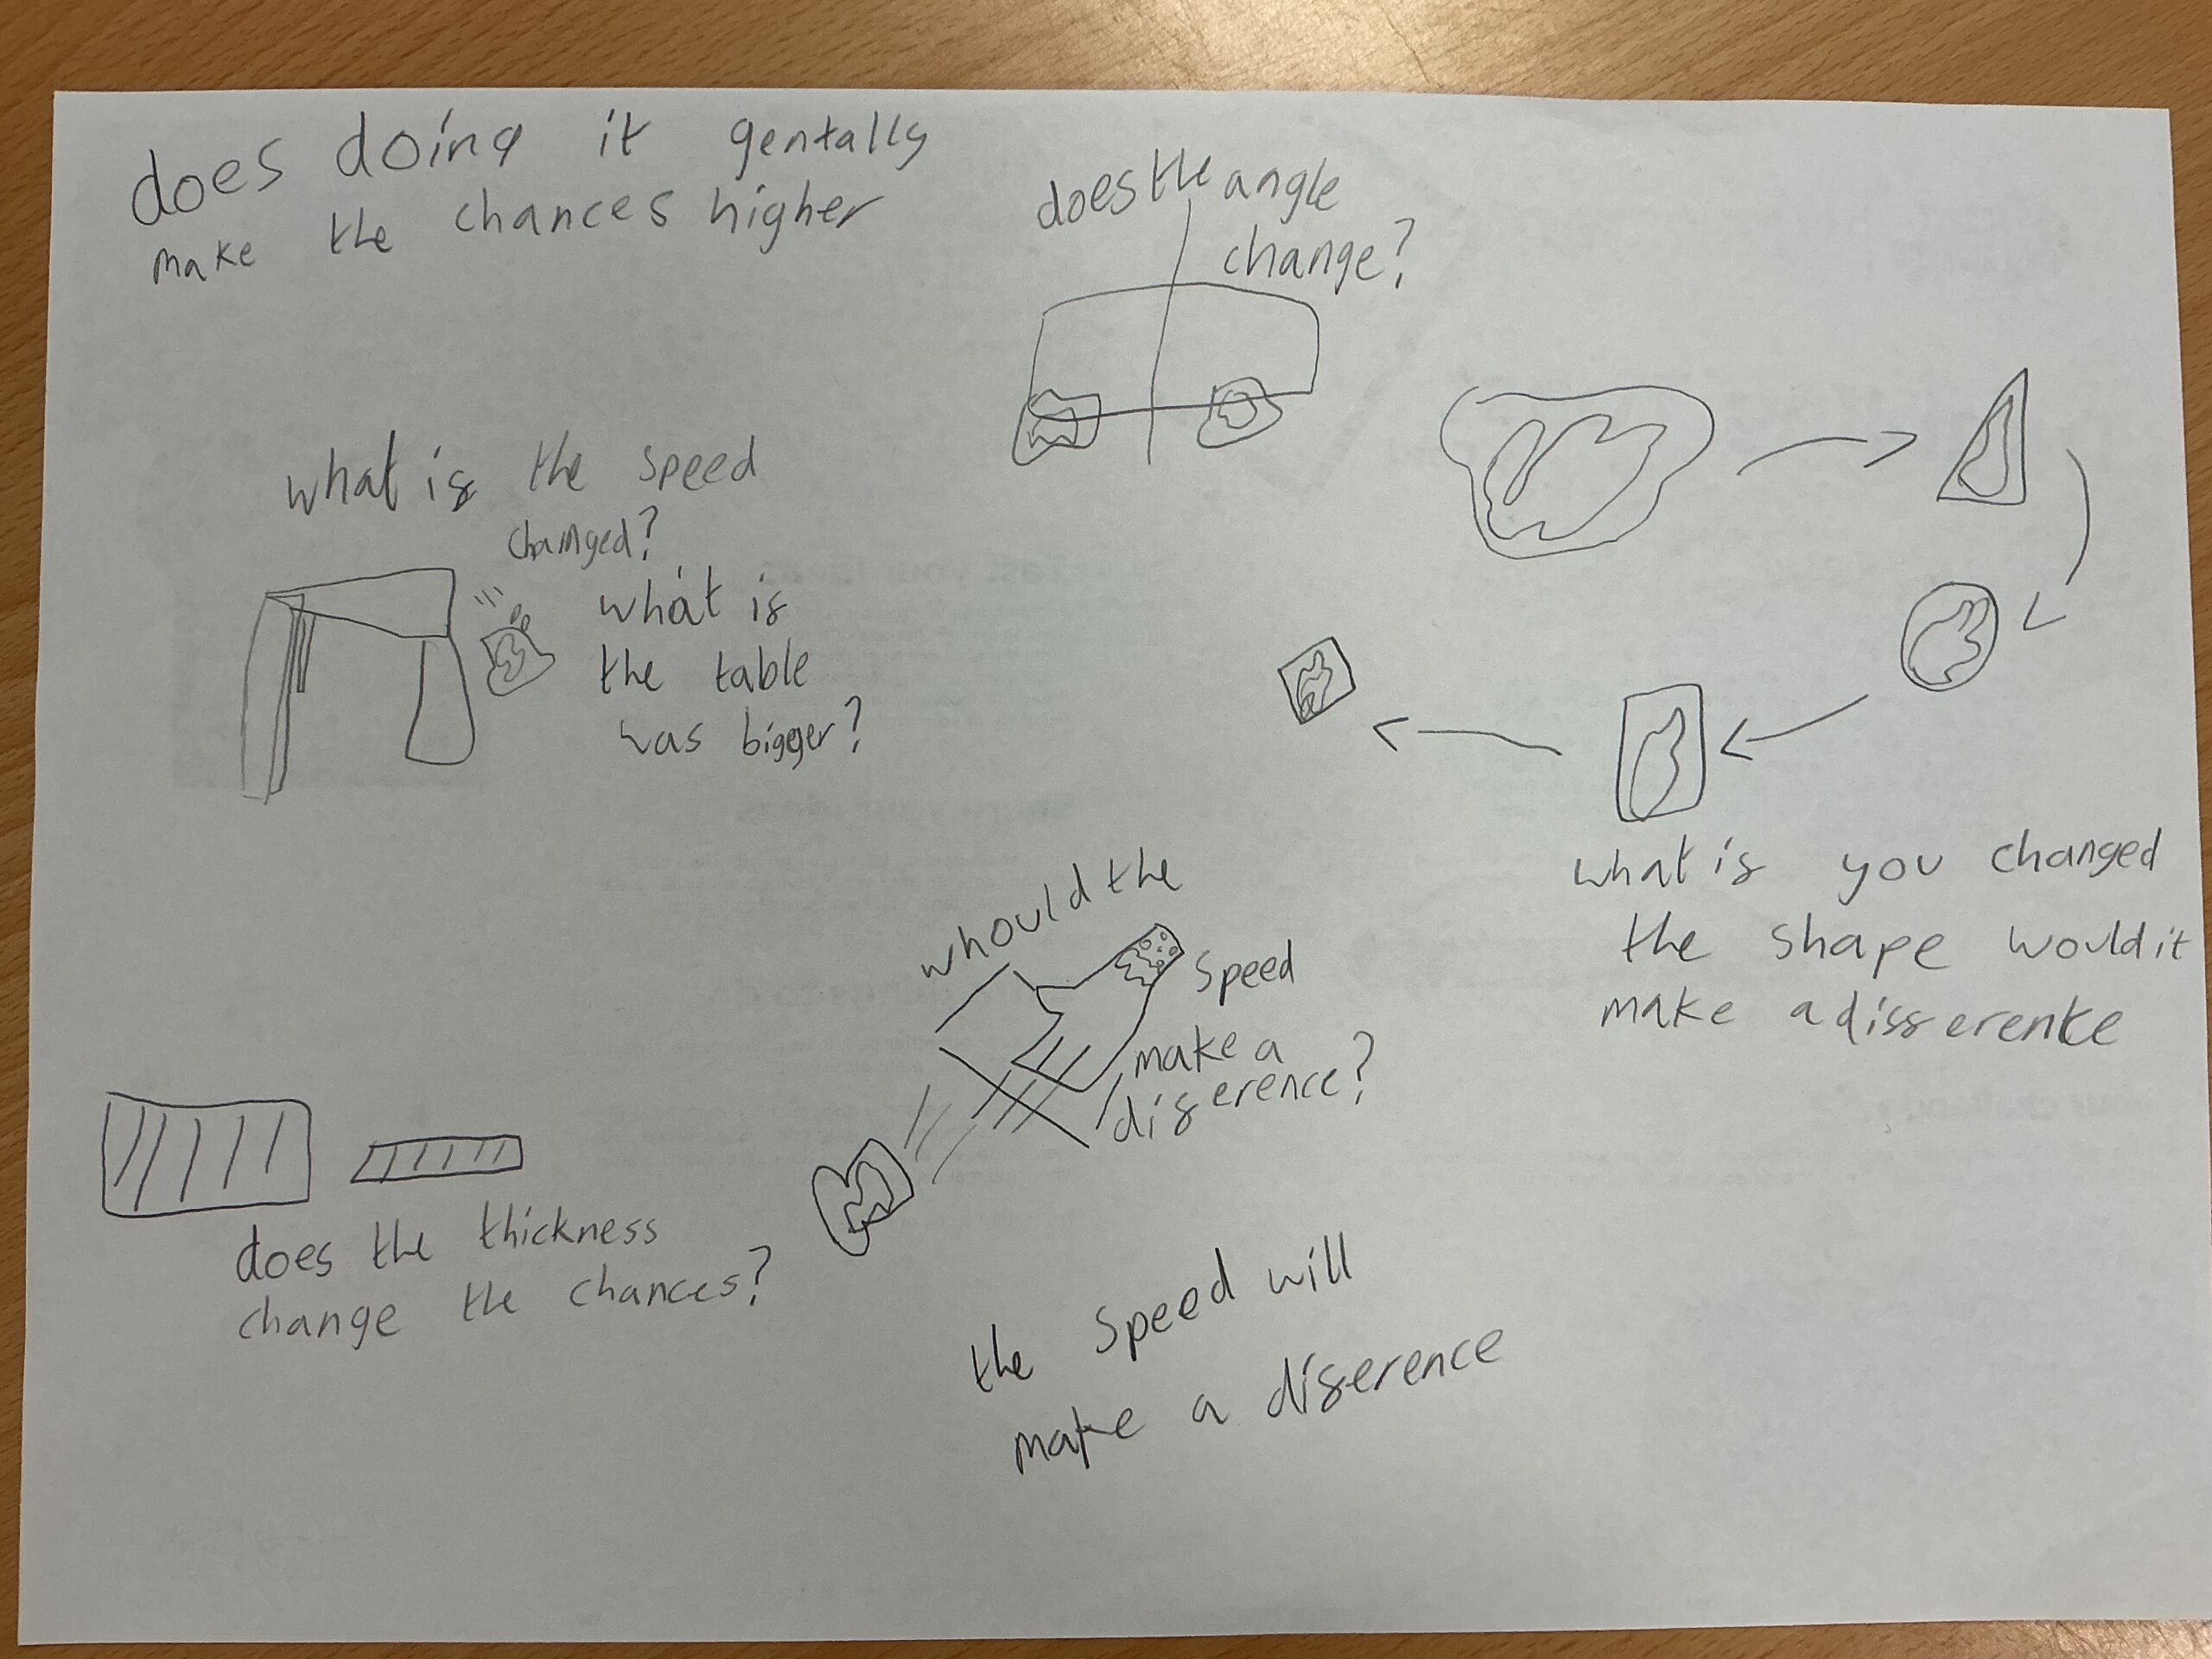 does doing it gentally
make the chances higher
does the angle
change?
what is the speed
chainged?
what is
the table
was bigger?
what is you changed
the shape would it
make a disserence
whould the
speed
make a
diserence?
does the thickness
change the chances?
the speed will
make a diserence